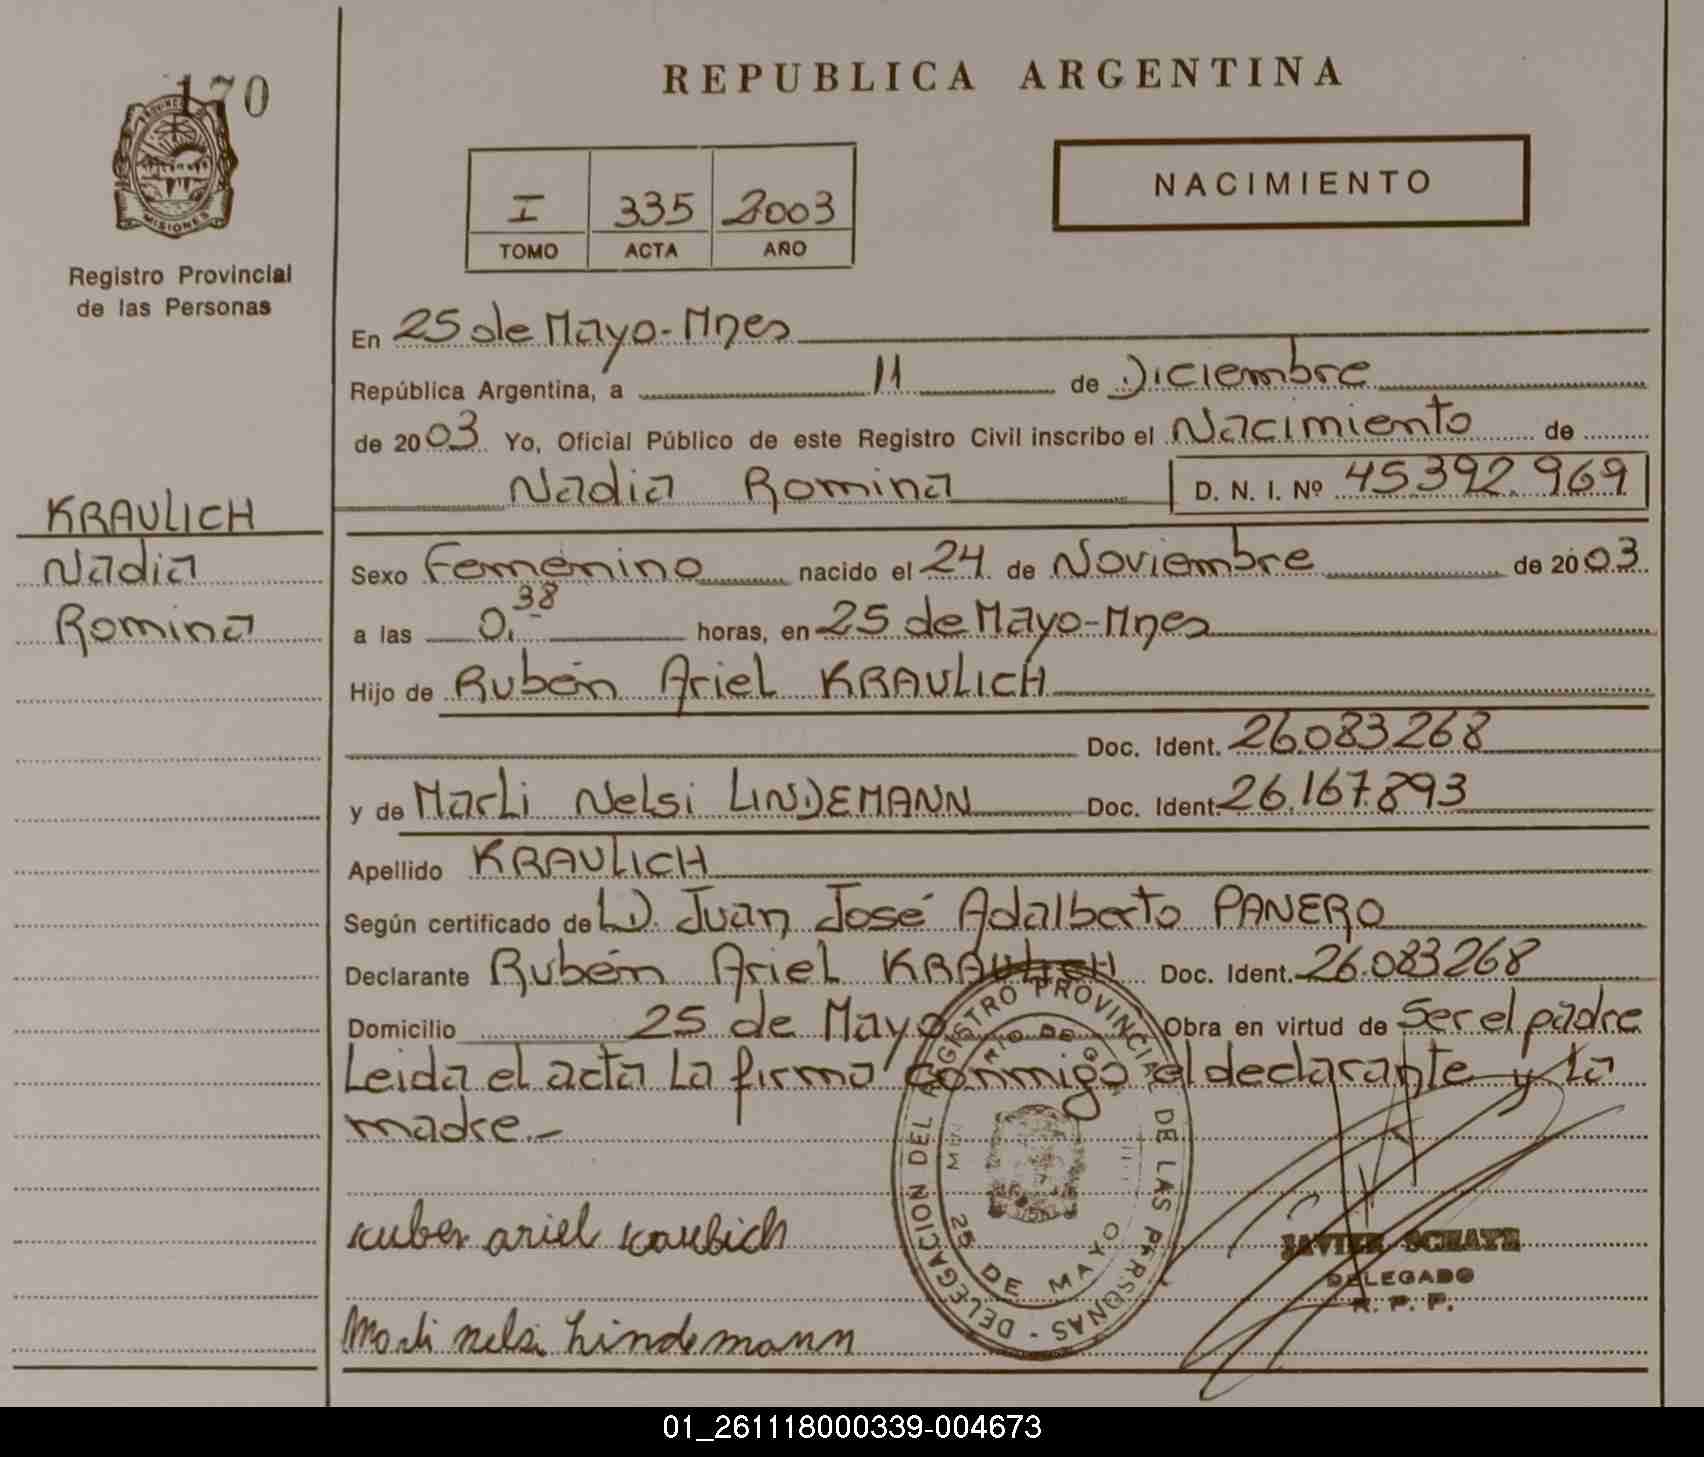 170
PROVINCIA
MISIONES
Registro Provincial
de las Personas
KRAULICH
Nadia
Romina
REPUBLICA ARGENTINA
I 335 2003
TOMO ACTA AÑO
NACIMIENTO
En 25 de Mayo-Mnes
República Argentina, a 11 de Diciembre
de 2003 Yo, Oficial Público de este Registro Civil inscribo el Nacimiento de
Nadia Romina D. N. I. Nº 45.392.969
Sexo Femenino nacido el 24 de Noviembre de 2003
a las 0.38 horas, en 25 de Mayo-Mnes
Hijo de Rubén Ariel KRAULICH
Doc. Ident. 26.083.268
y de Marli Nelsi LINDEMANN Doc. Ident. 26.167.893
Apellido KRAULICH
Según certificado de L.D. Juan José Adalberto PANERO
Declarante Rubén Ariel KRAULICH Doc. Ident. 26.083.268
Domicilio 25 de Mayo Obra en virtud de Ser el padre
Leida el acta la firma conmigo el declarante y la
madre.-
DELEGACION DEL REGISTRO PROVINCIAL DE LAS PERSONAS -
25 DE MAYO
ariel
JAVIER
DELEGADO
R. P. P.
Marli nelsi Lindemann
01_261118000339-004673